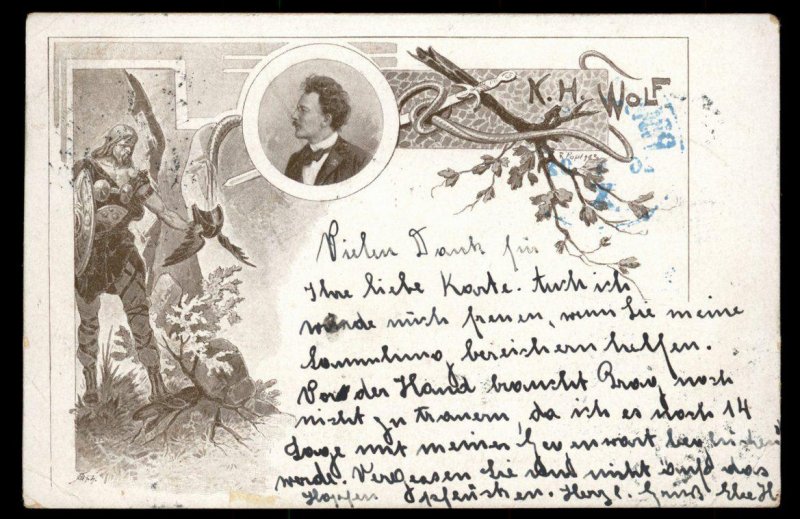 K. H. WOLF
Vielen Dank für
Ihre liebe Karte. Auch ich
würde mich freuen, wenn Sie meine
Sammlung bereichern helfen.
Vor der Hand braucht Prag noch
nicht zu trauern, da ich es noch 14
Tage mit meiner Gegenwart beglücken
werde. Vergessen Sie nur nicht auf das
Hopfen Herzl. Gruß